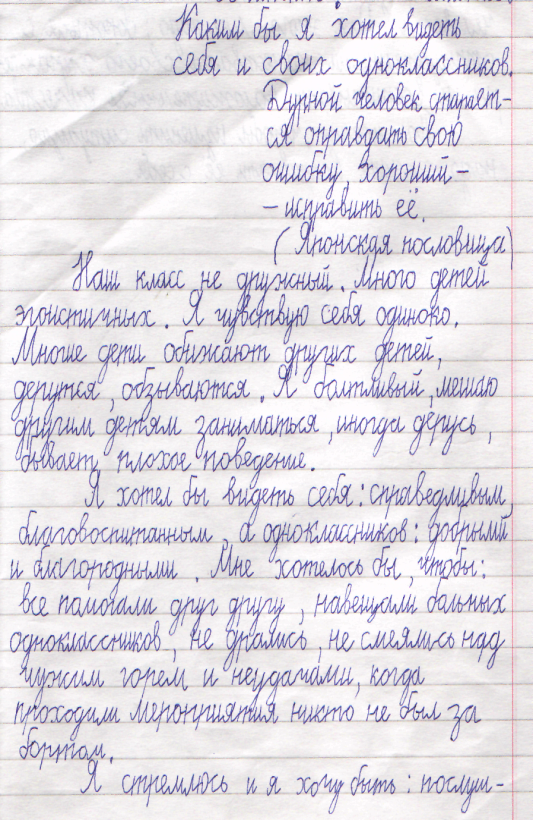 Каким бы я хотел видеть
себя и своих одноклассников.
Дурной человек старает-
ся оправдать свою
ошибку, хороший-
-исправить её.
(Японская пословица)
Наш класс не дружный. Много детей
эгоистичных. Я чувствую себя одиноко.
Многие дети обижают других детей,
дерутся, обзываются. Я болтливый, мешаю
другим детям заниматься, иногда дерусь,
бывает плохое поведение.
Я хотел бы видеть себя: справедливым,
благовоспитанным, а одноклассников: добрыми
и благородными. Мне хотелось бы, чтобы:
все помогали друг другу, навещали больных
одноклассников, не дрались, не смеялись над
чужим горем и неудачами, когда
проходили мероприятия никто не был за
бортом.
Я стремлюсь и я хочу быть: послуш-